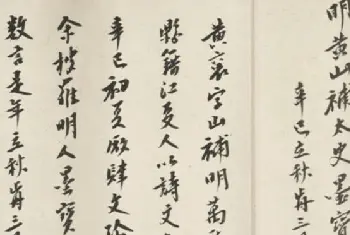 明黃山補太史墨寶
辛巳立秋前三
黃袞字山補明萬
縣籍江夏人以詩文
辛巳初夏廠肆文
余搜羅明人墨寶
數言是年立秋前三